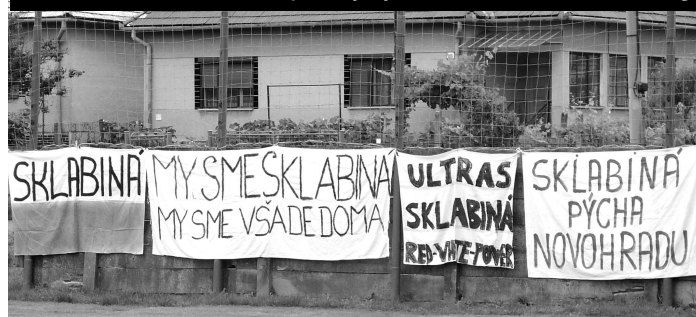 SKLABINÁ
MY SME SKLABINÁ
MY SME VŠADE DOMA
ULTRAS
SKLABINÁ
RED-WHITE-POWER
SKLABINÁ
PÝCHA
NOVOHRADU